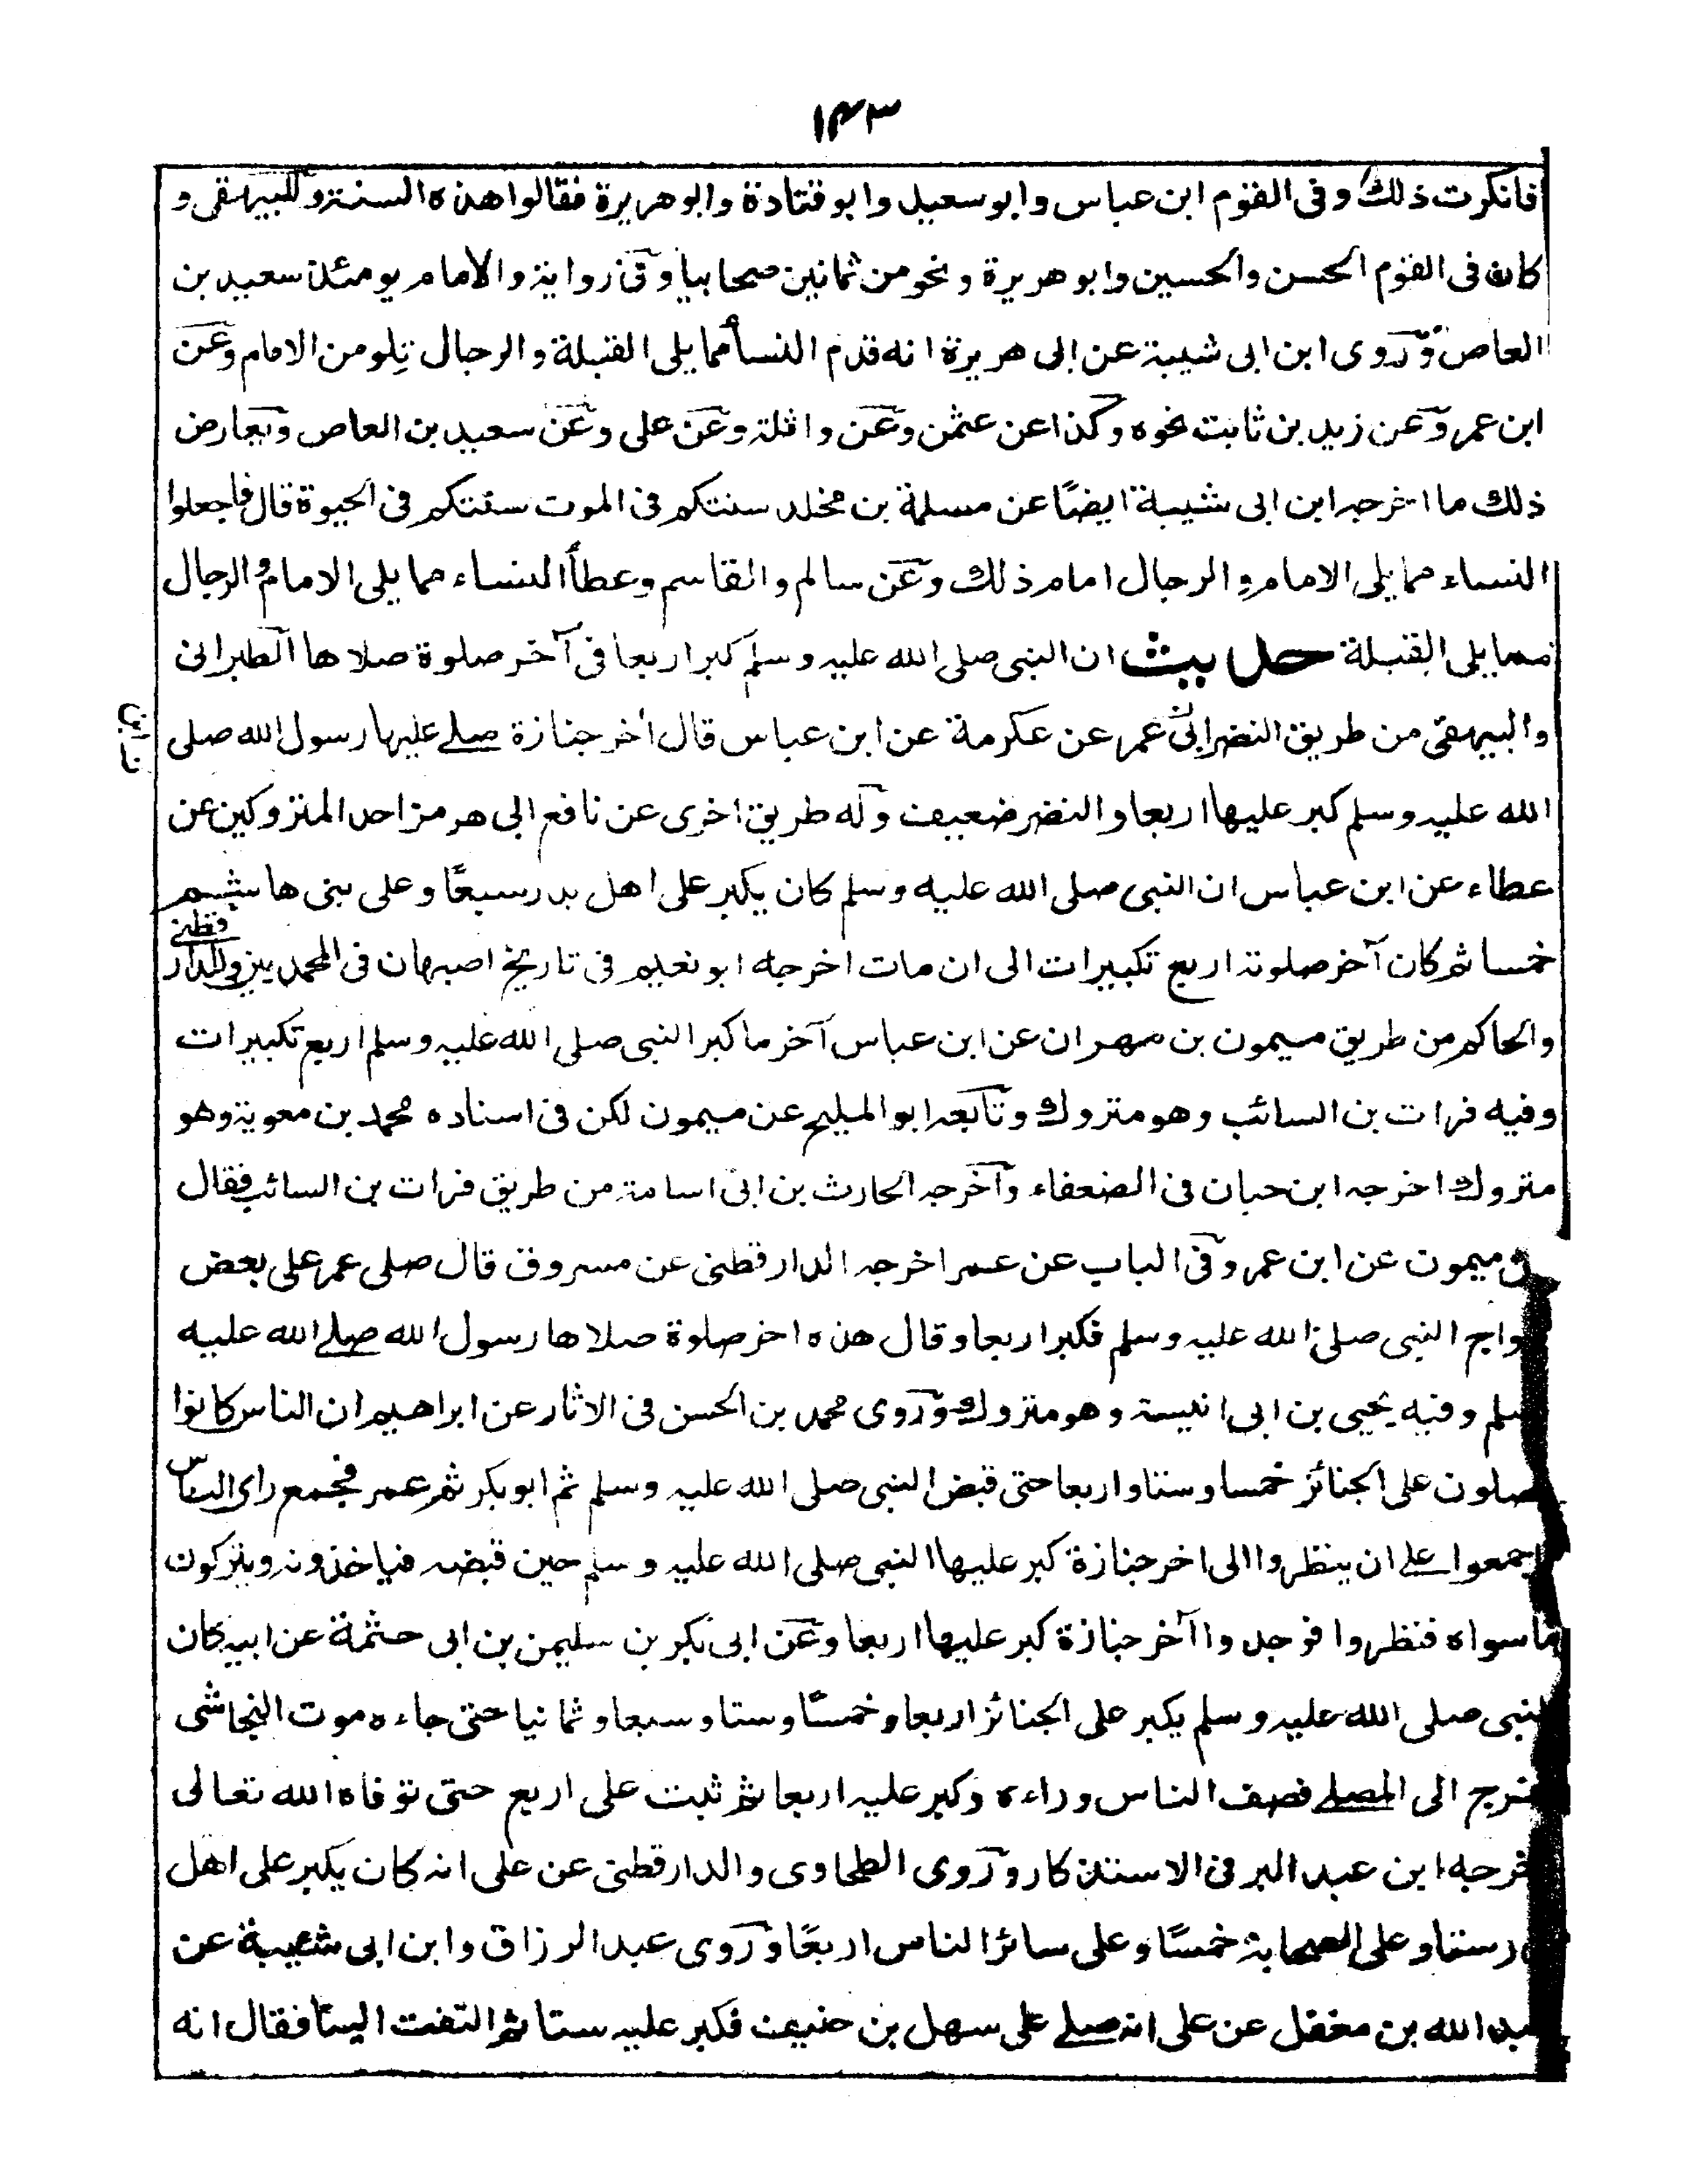 ١٤٣
فانكرت ذلك وفى القوم ابن عباس وابو سعيد وابو قتادة وابو هريرة فقالوا هذه السنة وللبيهقى و
كان فى القوم الحسن والحسين وابو هريرة ونحو من ثمانين صحابيا وفى رواية والامام يومئذ سعيد بن
العاص وروى ابن ابى شيبة عن ابى هريرة انه قدم النسأ مما يلى القبلة والرجال يلون الامام وعن
ابن عمر وعن زيد بن ثابت نحوه وكذا عن عثمن وعن واثلة وعن على وعن سعيد بن العاص وتعارض
ذلك ما اخرجه ابن ابى شيبة ايضًا عن مسلمة بن مخلد سنتكم فى الموت سنتكم فى الحيوة قال فاجعلوا
النساء مما يلى الامام والرجال امام ذلك وعن سالم والقاسم وعطأ النساء مما يلى الامام والرجال
مما يلى القبلة حديث ان النبى صلى الله عليه وسلم كبر اربعا فى آخر صلوة صلاها الطبرانى
والبيهقى من طريق النضر ابى عمر عن عكرمة عن ابن عباس قال آخر جنازة صلے عليها رسول الله صلى
الله عليه وسلم كبر عليها اربعا والنضر ضعيف وله طريق اخرى عن نافع ابى هرمز احد المتروكين عن
عطاء عن ابن عباس ان النبى صلى الله عليه وسلم كان يكبر على اهل بدر سبعًا وعلى بنى هاشم
خمسا ثم كان آخر صلوته اربع تكبيرات الى ان مات اخرجه ابو نعيم فى تاريخ اصبهان فى المحمدين وللدار
قطنے
والحاكم من طريق ميمون بن مهران عن ابن عباس آخر ما كبر النبى صلى الله عليه وسلم اربع تكبيرات
وفيه فرات بن السائب وهو متروك وتابعه ابو المليح عن ميمون لكن فى اسناده محمد بن معوية وهو
متروك اخرجه ابن حبان فى الضعفاء وآخرجه الحارث بن ابى اسامة من طريق فرات بن السائب فقال
ن ميمون عن ابن عمر وفى الباب عن عمر اخرجه الدارقطنى عن مسروق قال صلى عمر على بعض
واج النبى صلى الله عليه وسلم فكبر اربعا وقال هذه اخر صلوة صلاها رسول الله صلے الله عليه
سلم وفيه يحيى بن ابى انيسة وهو متروك وروى محمد بن الحسن فى الاثار عن ابراهيم ان الناس كانوا
صلون على الجنائز خمسا وستا واربعا حتى قبض النبى صلى الله عليه وسلم ثم ابو بكر ثم عمر فجمع راى الناس
اجمعوا علے ان ينظروا الى اخر جنازة كبر عليها النبى صلى الله عليه وسلم حين قبض فياخذونه ويتركون
ما سواه فنظروا فوجدوا آخر جنازة كبر عليها اربعا وعن ابى بكر بن سليمن بن ابى حثمة عن ابيه كان
لنبى صلى الله عليه وسلم يكبر على الجنائز اربعا وخمسًا وستا وسبعا وثمانيا حتى جاءه موت النجاشى
خرج الى المصلے فصف الناس وراءه وكبر عليه اربعا ثم ثبت على اربع حتى توفاه الله تعالى
خرجه ابن عبد البر فى الاستذكار وروى الطحاوى والدارقطنى عن على انه كان يكبر على اهل
در ستا وعلى الصحابة خمسًا وعلى سائر الناس اربعًا وروى عبد الرزاق وابن ابى شيبة عن
عبد الله بن مغفل عن على انه صلے على سهل بن حنيف فكبر عليه ستا ثم التفت الينا فقال انه